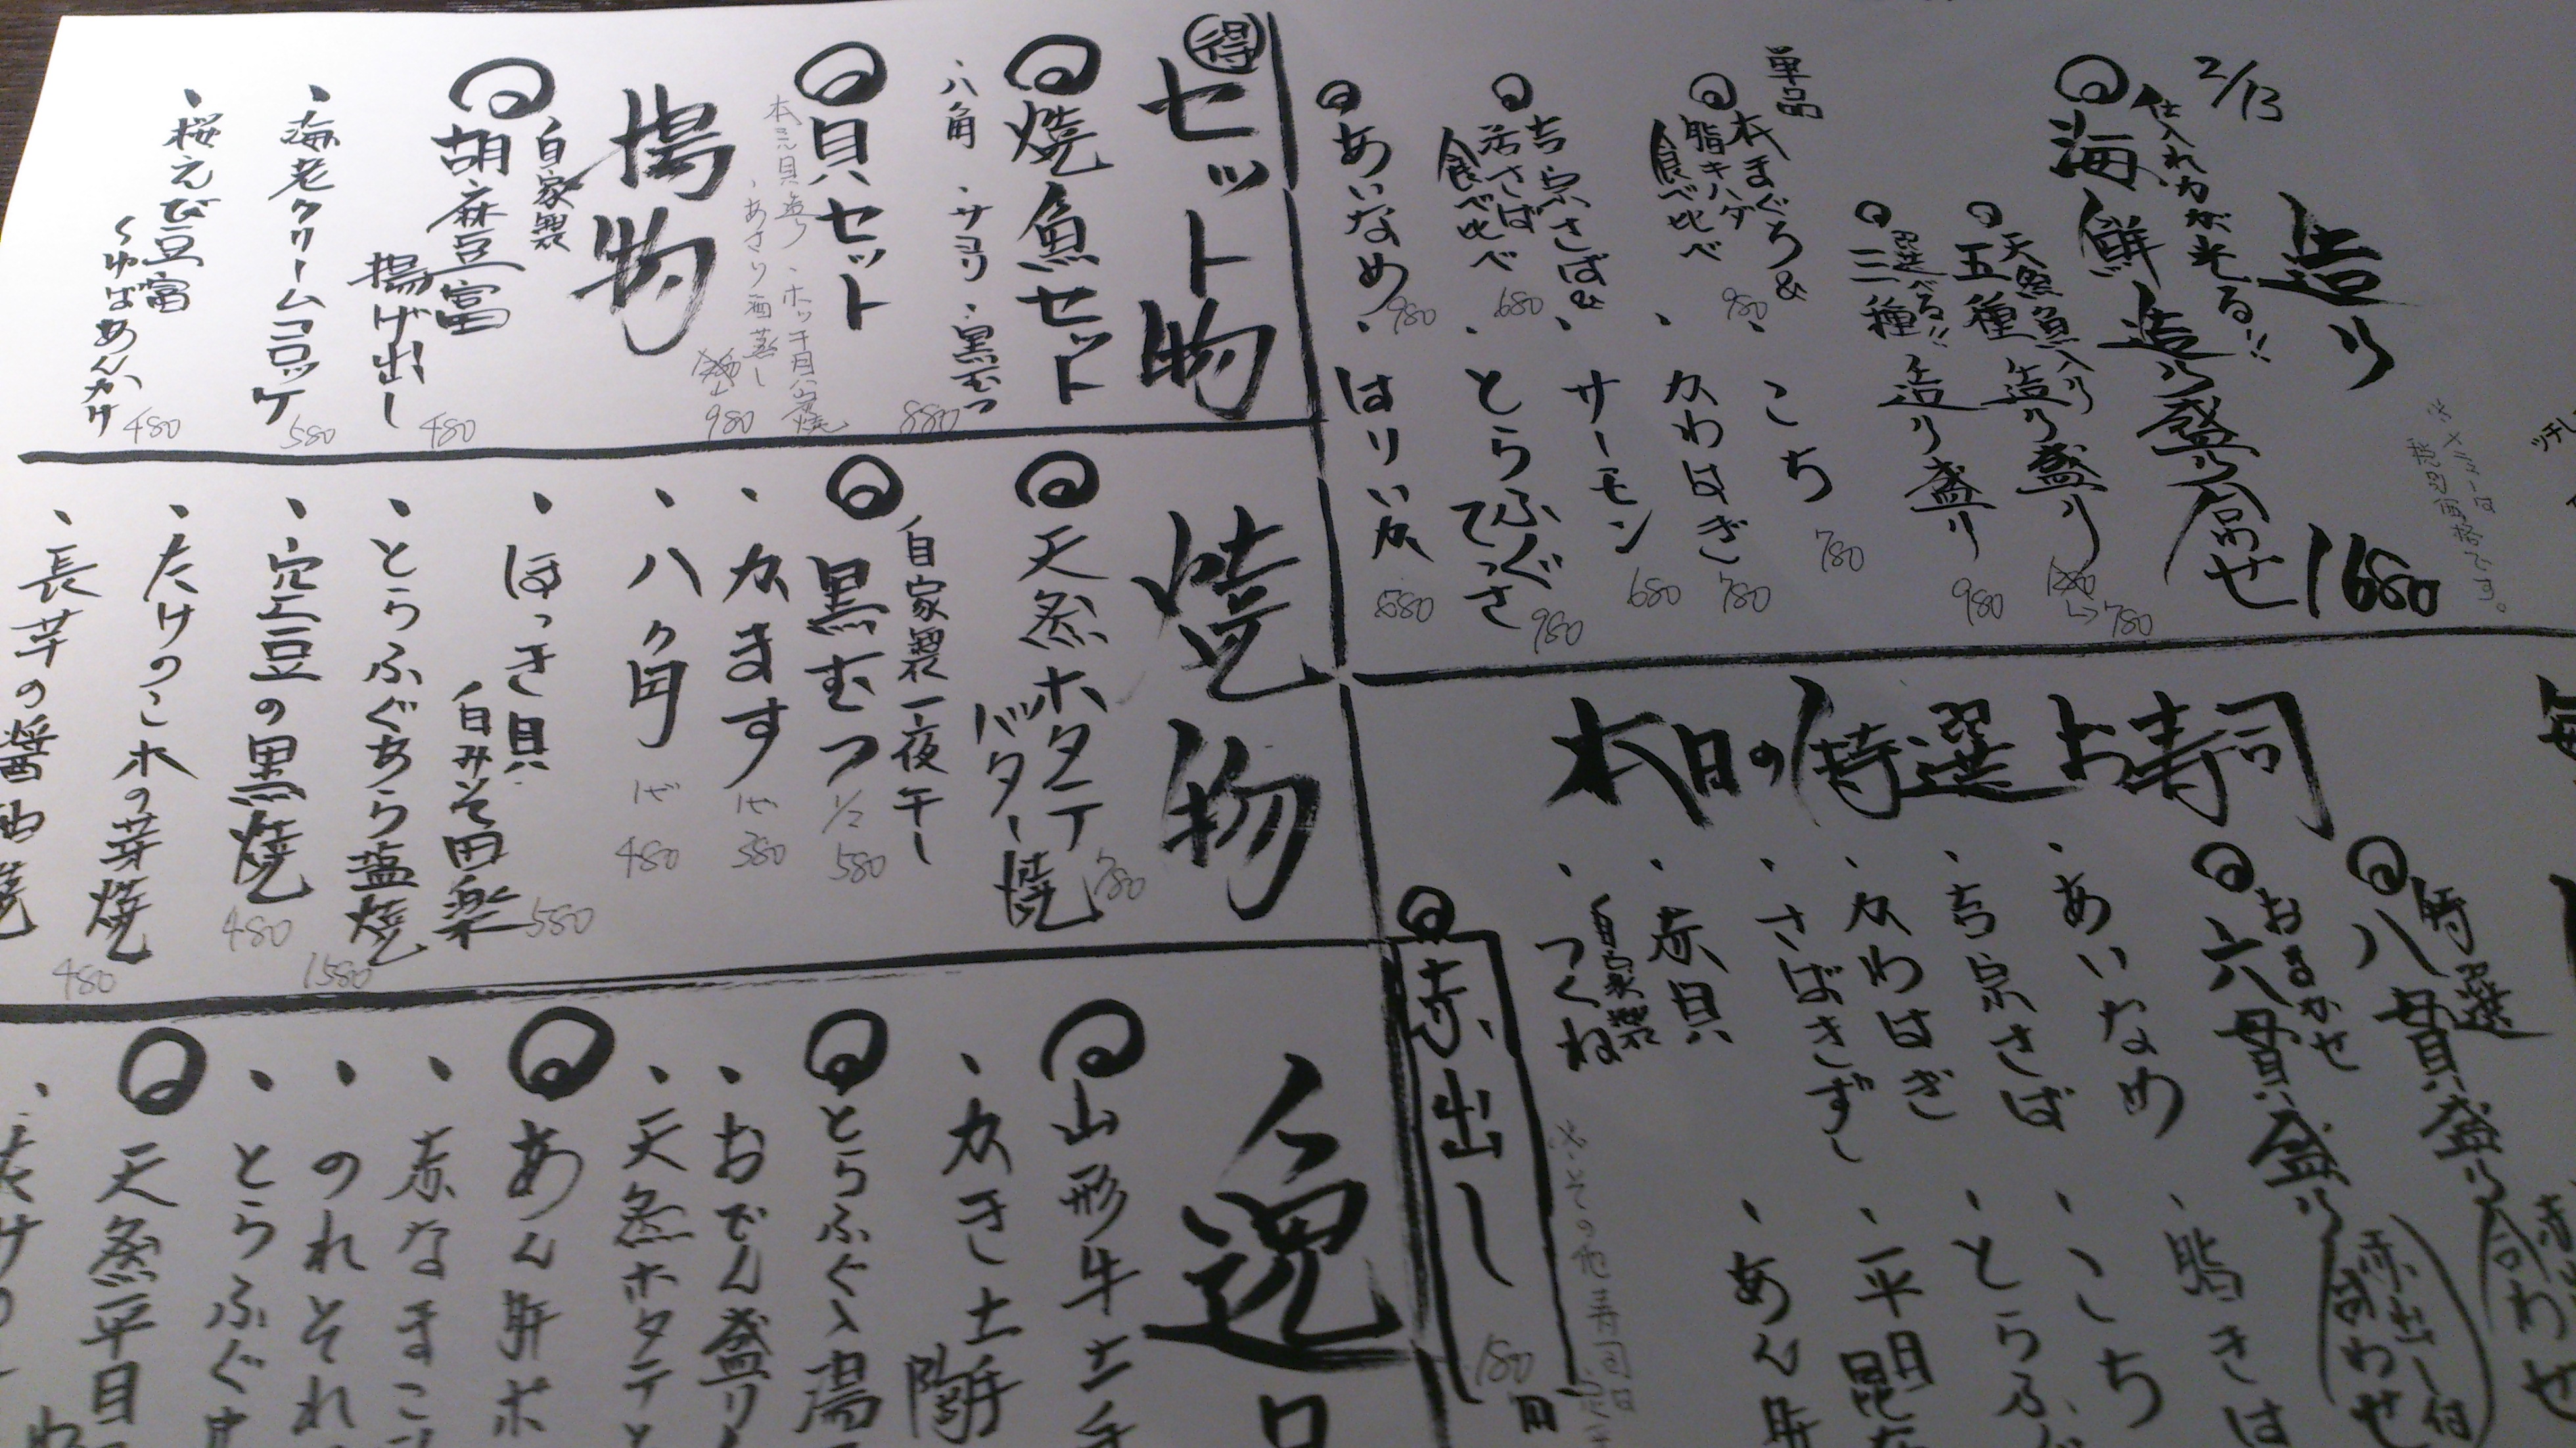 2/13
造り
仕入れ力が光る!!
海鮮造り盛り合せ 1680
天然魚入り
五種造り盛り 780
選べる!!
三種造り盛り 980
単品
本まぐろ&
脂キハダ
食べ比べ 980
吉宗さば&
活さば
食べ比べ 680
あいなめ 980
・こち 780
・カわはぎ 780
・サーモン 680
・とらふぐ
てっさ 980
・はりいカ
得
セット物
焼魚セット
・八角・サヨリ・黒むつ 880
貝セット
・ホッキ貝
・あさり酒蒸し 980
揚物
自家製
胡麻豆富
揚げ出し 480
・海老クリームコロッケ 580
・桜えび豆富
くゆばあんかけ 480
焼物
天然ホタテ
バター焼 780
自家製一夜干し
黒むつ 1/2 580
・カます
・八ヶ角 480
・ほっき貝
白みそ田楽 580
・とらふぐあら塩焼 1580
・空豆の黒焼 480
・たけのこ木の芽焼 480
・長芋の醤油焼
本日の特選お寿司
特選
八貫盛り合わせ
おまかせ
六貫盛り
赤出し付
・あいなめ
・吉宗さば
・カわはぎ
・さばきずし
・赤貝
・自家製
つくね
・脂きは
・こち
・とらふぐ
・平目昆
・あん肝
赤出し 180
※その他寿司
一逸
山形牛土手
・カき土手
とらふぐ入湯
・おでん盛り
・天然ホタテと
あん肝ポ
・赤なまこ
・のれそれ
・とらふぐ
天然平目